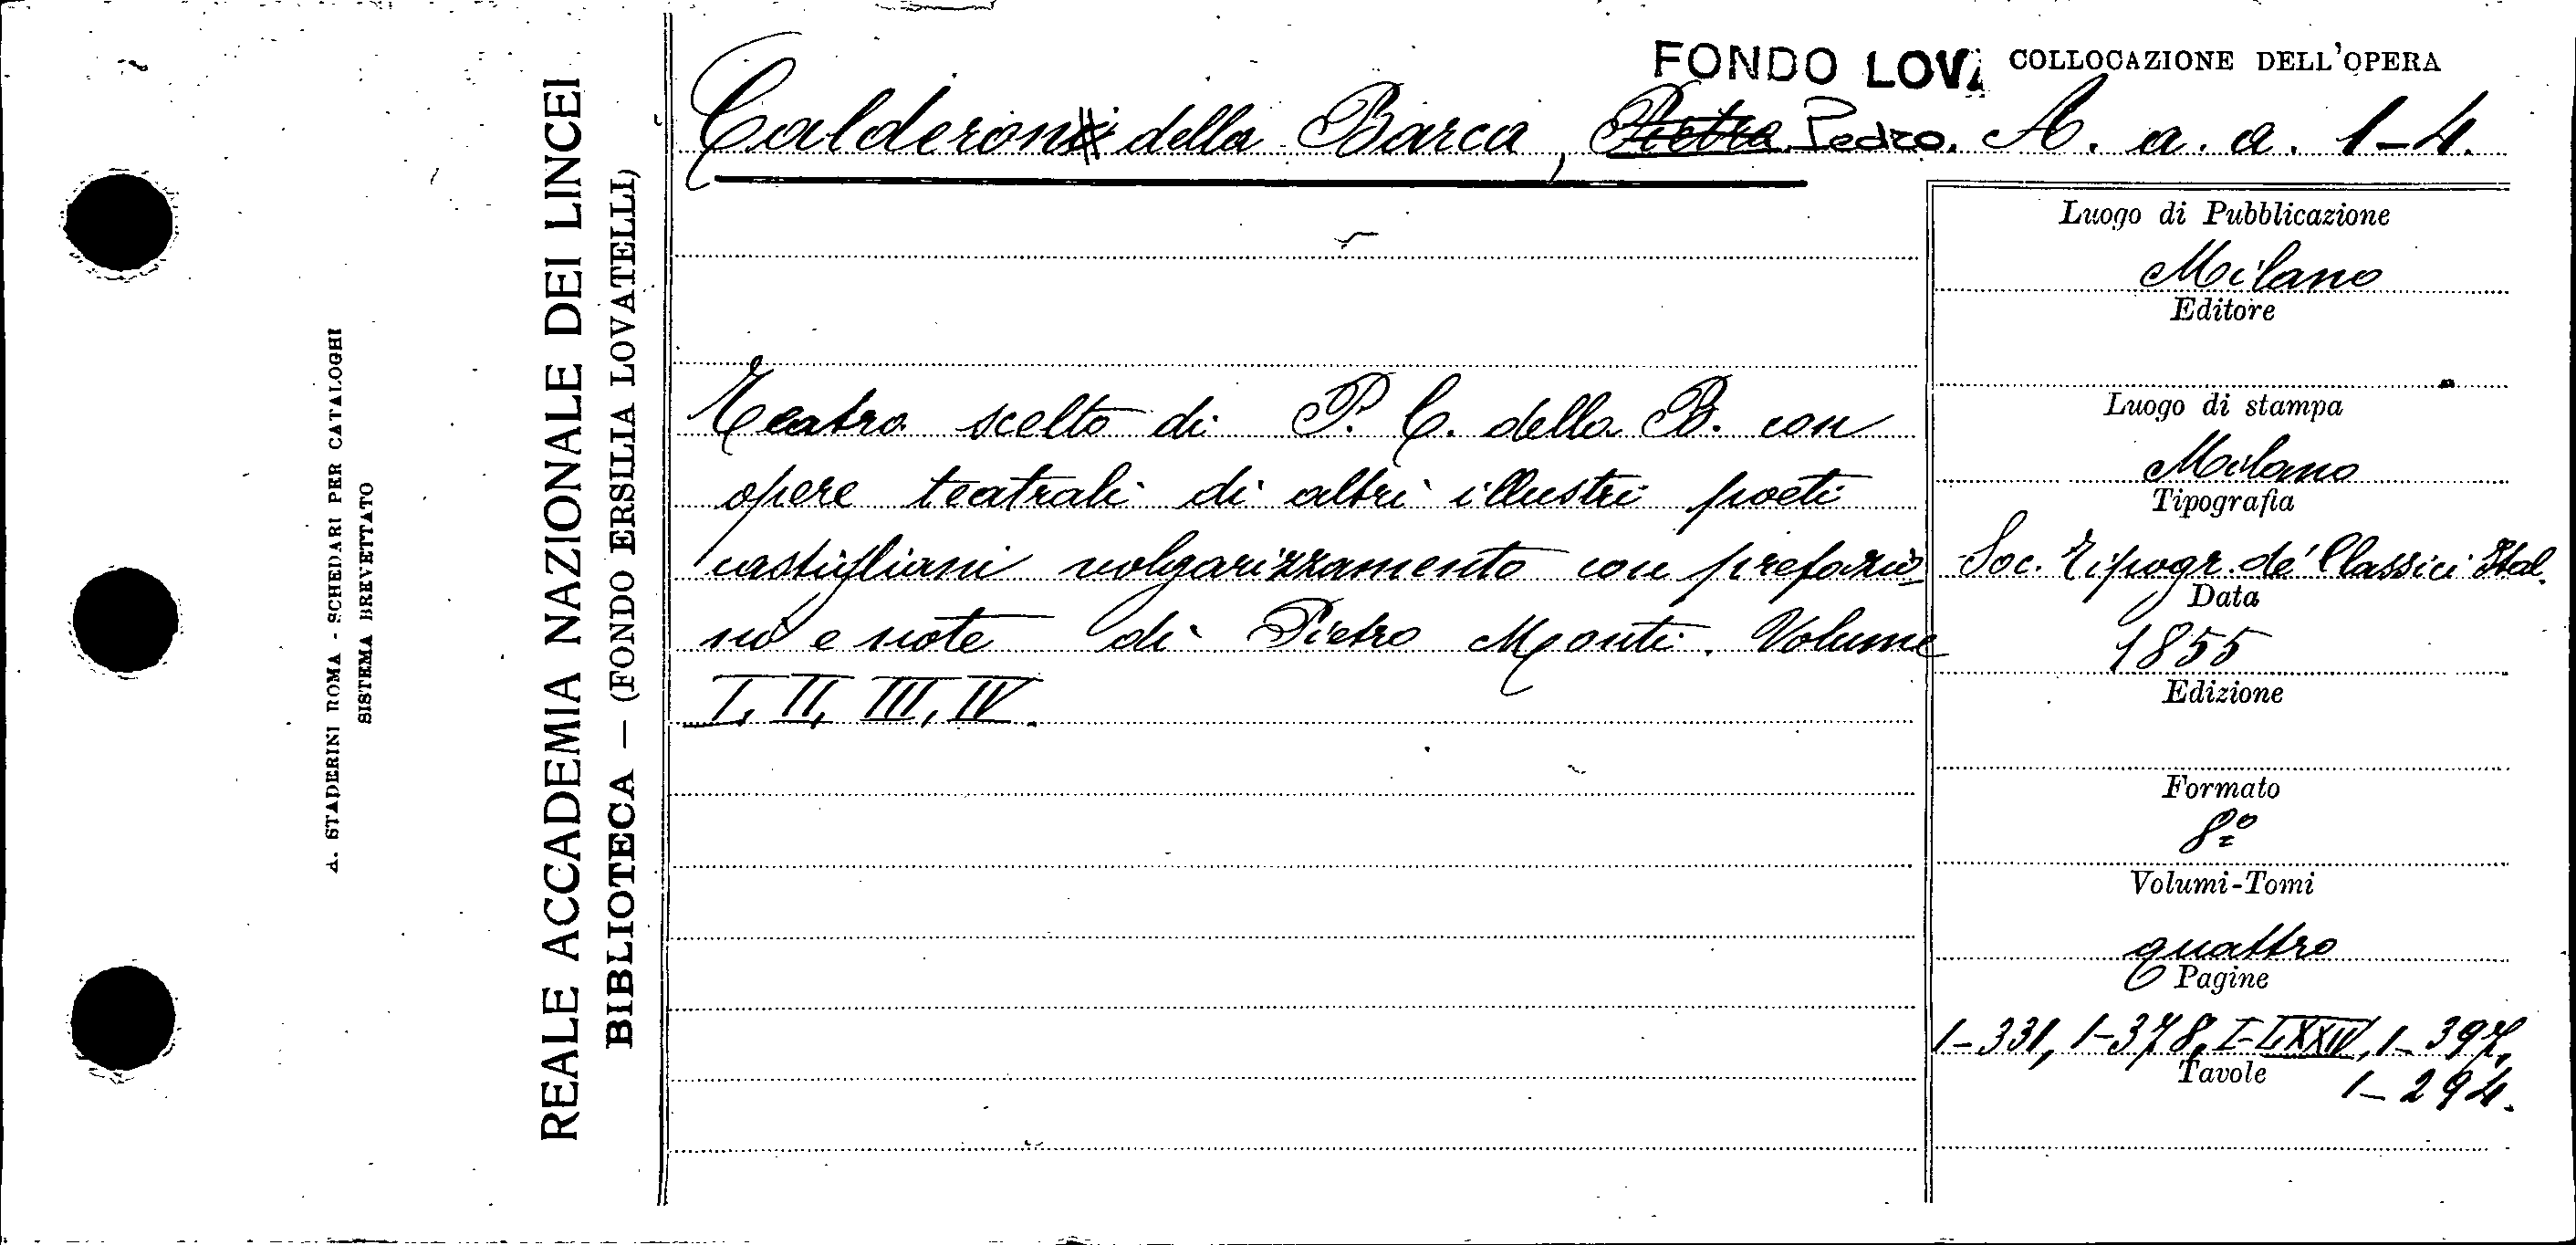 FONDO LOVA COLLOCAZIONE DELL'OPERA
Calderon della Barca, Pietro Pedro. A. a. a. 1-4.
Teatro scelto di P. C. della B. con
opere teatrali di altri illustri poeti
castigliani volgarizzamento con prefazio-
ni e note di Pietro Monti. Volume
I, II, III, IV.
Luogo di Pubblicazione
Milano
Editore
Luogo di stampa
Milano
Tipografia
Soc. Tipogr. de' Classici Ital.
Data
1855
Edizione
Formato
8º
Volumi-Tomi
quattro
Pagine
1-331, 1-378, I-LXXIV, 1-397,
Tavole
1-294.
REALE ACCADEMIA NAZIONALE DEI LINCEI
BIBLIOTECA — (FONDO ERSILIA LOVATELLI)
A. STADERINI ROMA - SCHEDARI PER CATALOGHI
SISTEMA BREVETTATO